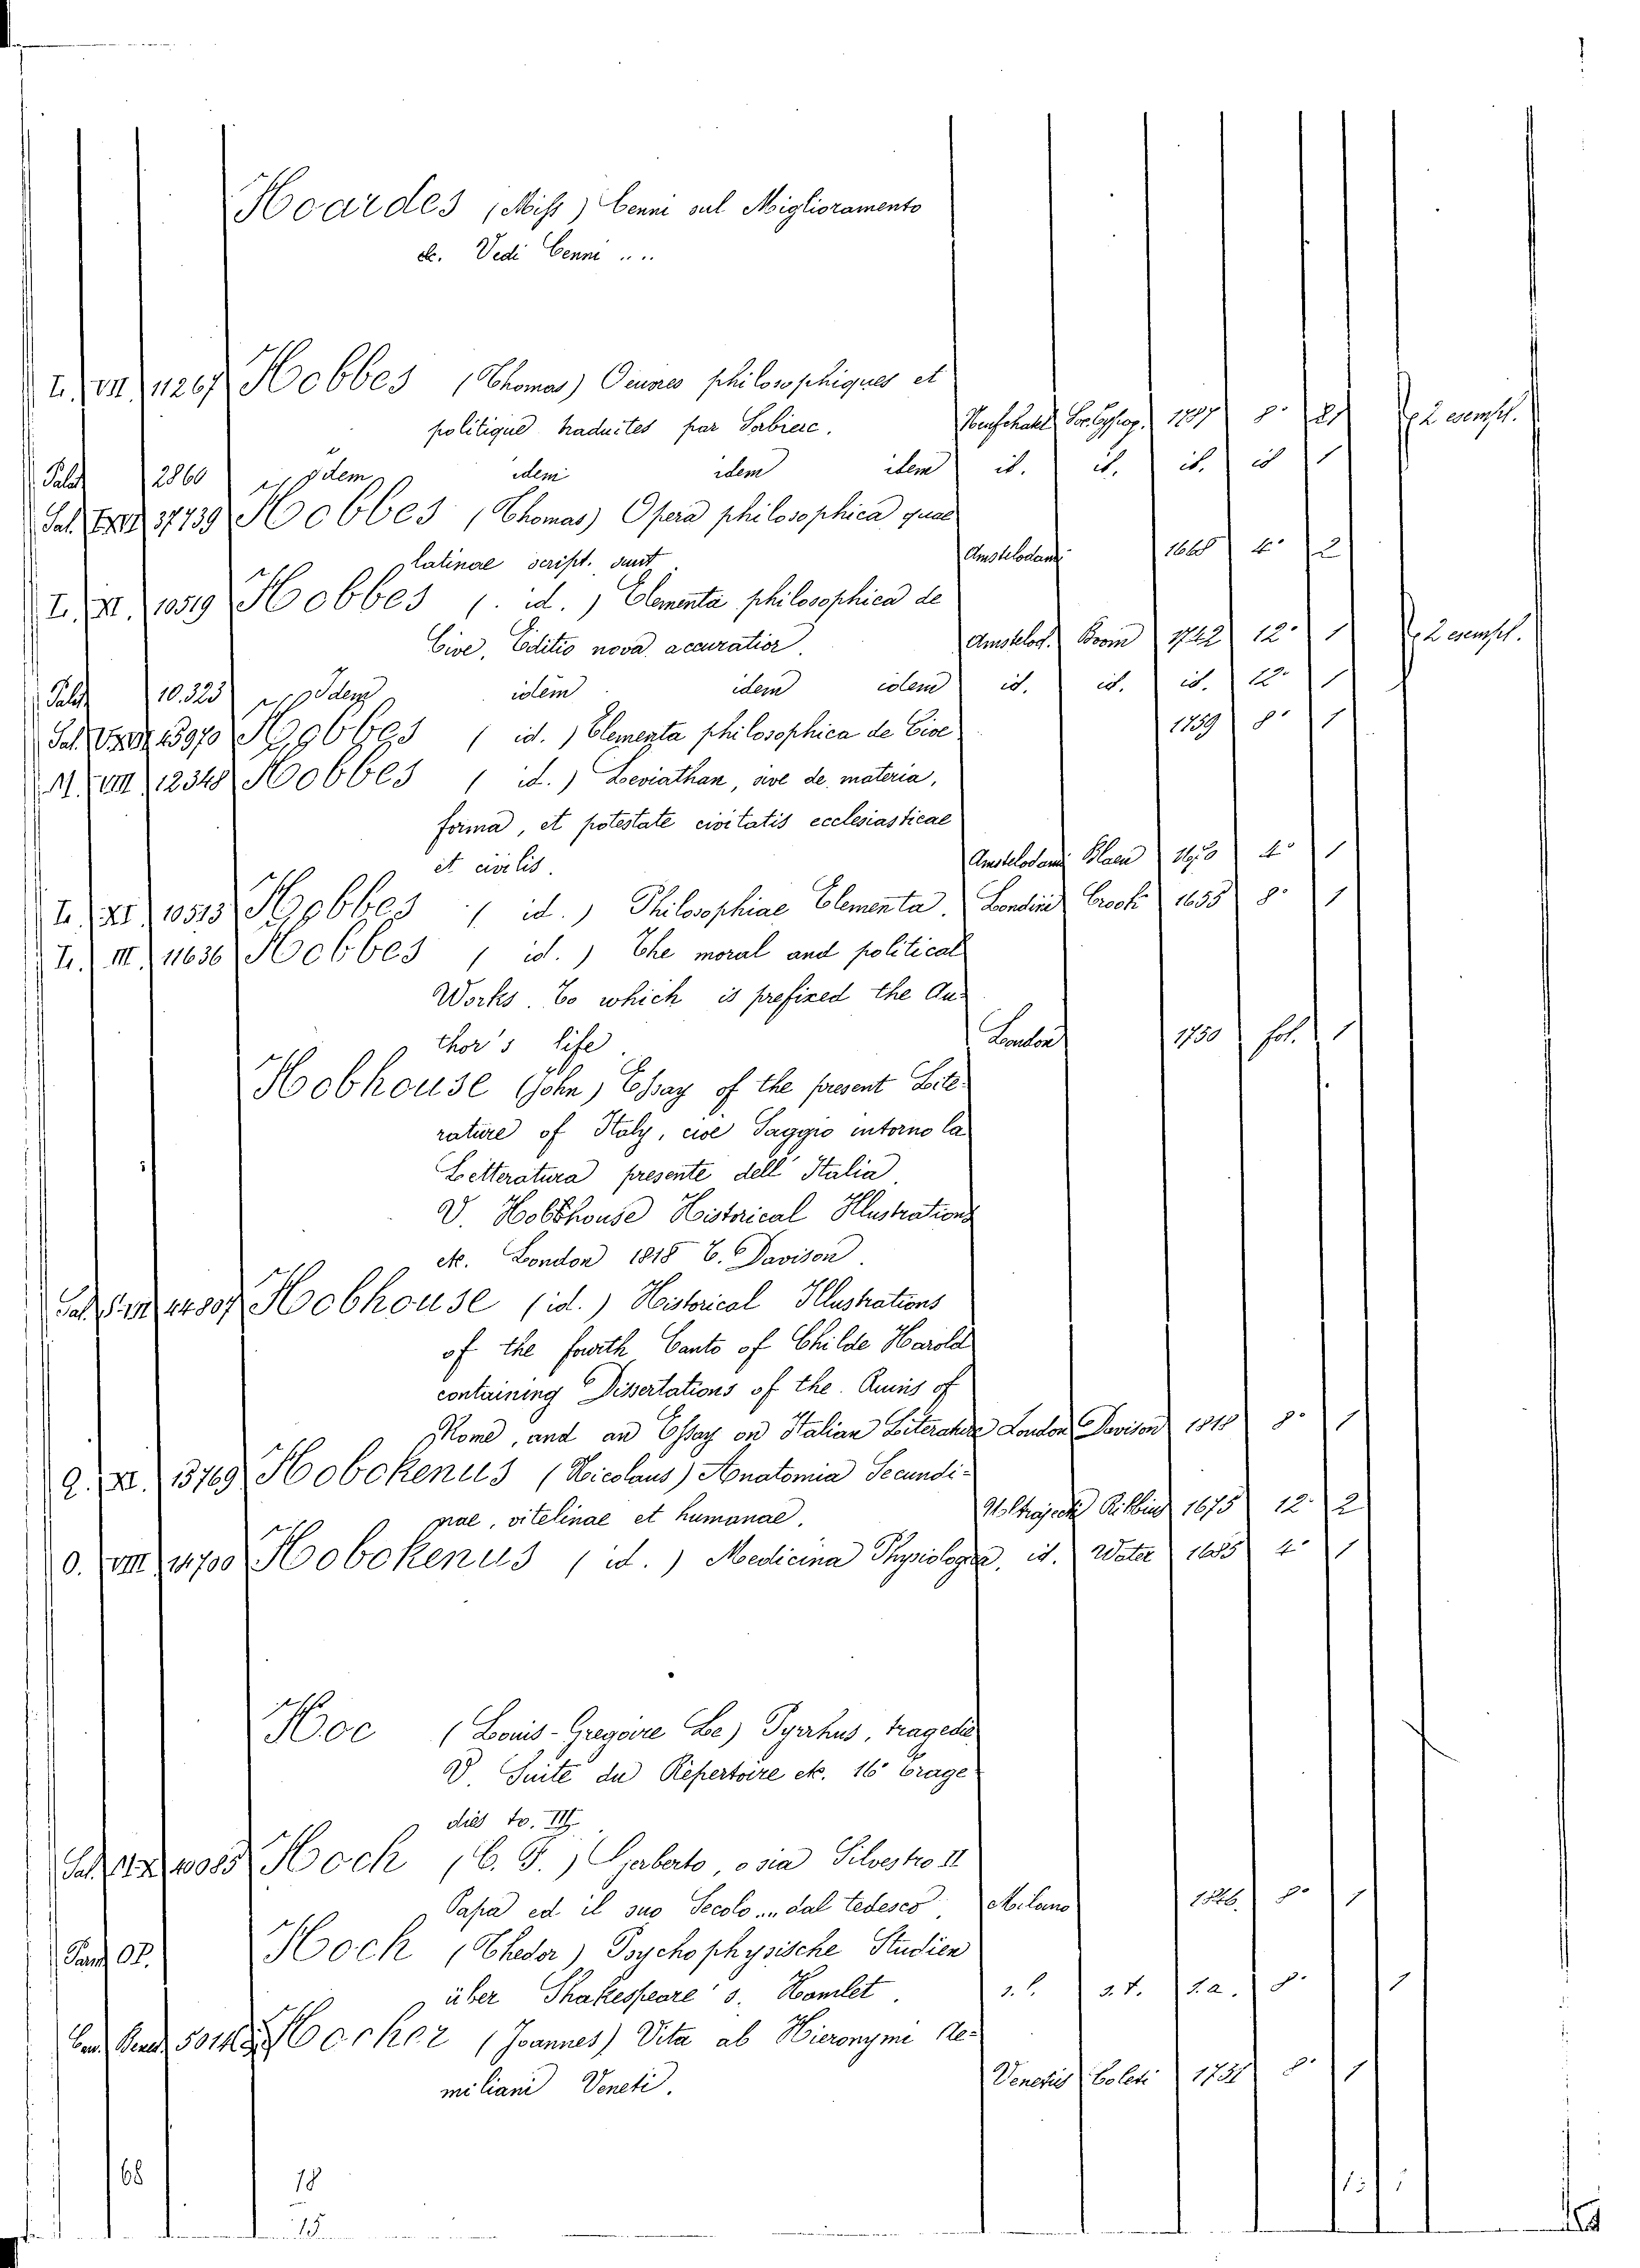 Hoardes (Miss) Cenni sul Miglioramento
etc. Vedi Cenni ....
L. VII. 11267 Hobbes (Thomas) Oeuvres philosophiques et
politique traduites par Sorbiere. Neufchatel Soc. Typog. 1787 8° 2 2 esempl.
Palat. 2860 idem idem idem idem id. id. id. id 1
Sal. 37739 Hobbes (Thomas) Opera philosophica quae
latinae script. sunt Amstelodami 1668 4° 2
L. XI. 10519 Hobbes ( id. ) Elementa philosophica de
Cive, Editio nova accuratior. Amstelod. Boom 1742 12° 1 2 esempl.
Palat. 10.323 idem idem idem idem id. id. id. 12° 1
Sal. 15970 Hobbes ( id. ) Elementa philosophica de Cive 1759 8° 1
M. VIII 12348 Hobbes ( id. ) Leviathan, sive de materia,
forma, et potestate civitatis ecclesiasticae
et civilis. Amstelodami Blaeu 1670 4° 1
L. XI. 10513 Hobbes ( id. ) Philosophiae Elementa. Londini Crook 1655 8° 1
L. III. 11636 Hobbes ( id. ) The moral and political
Works. To which is prefixed the Au-
thor's life. London 1750 fol. 1
Hobhouse (John) Essay of the present Lite-
rature of Italy, cioè Saggio intorno la
Letteratura presente dell' Italia.
V. Hobhouse Historical Illustrations
etc. London 1818 T. Davison.
Sal. 14807 Hobhouse (id.) Historical Illustrations
of the fourth Canto of Childe Harold
containing Dissertations of the Ruins of
Rome, and an Essay on Italian Literature London Davison 1818 8° 1
Q. XI. 13769 Hobokenus (Nicolaus) Anatomia Secundi-
nae, vitelinae et humanae. Ultrajecti Ribbius 1675 12° 2
O. VIII 14700 Hobokenus ( id. ) Medicina Physiologia, id. Water 1685 4° 1
Hoc (Louis-Gregoire Le) Pyrrhus, tragedie
V. Suite du Répertoire etc. 16° Trage-
dies to. III.
Sal. 10085 Hock (C. F.) Gerberto, o sia Silvestro II
Papa ed il suo Secolo ... dal tedesco. Milano 1846. 8° 1
Hock (Theder) Psychophysische Studien
über Shakespeare's Hamlet. s. l. s. t. s. a. 8° 1
Hocker (Joannes) Vita ab Hieronymi Ae-
miliani Veneti. Venetiis Coleti 1731 8° 1
68 18
15